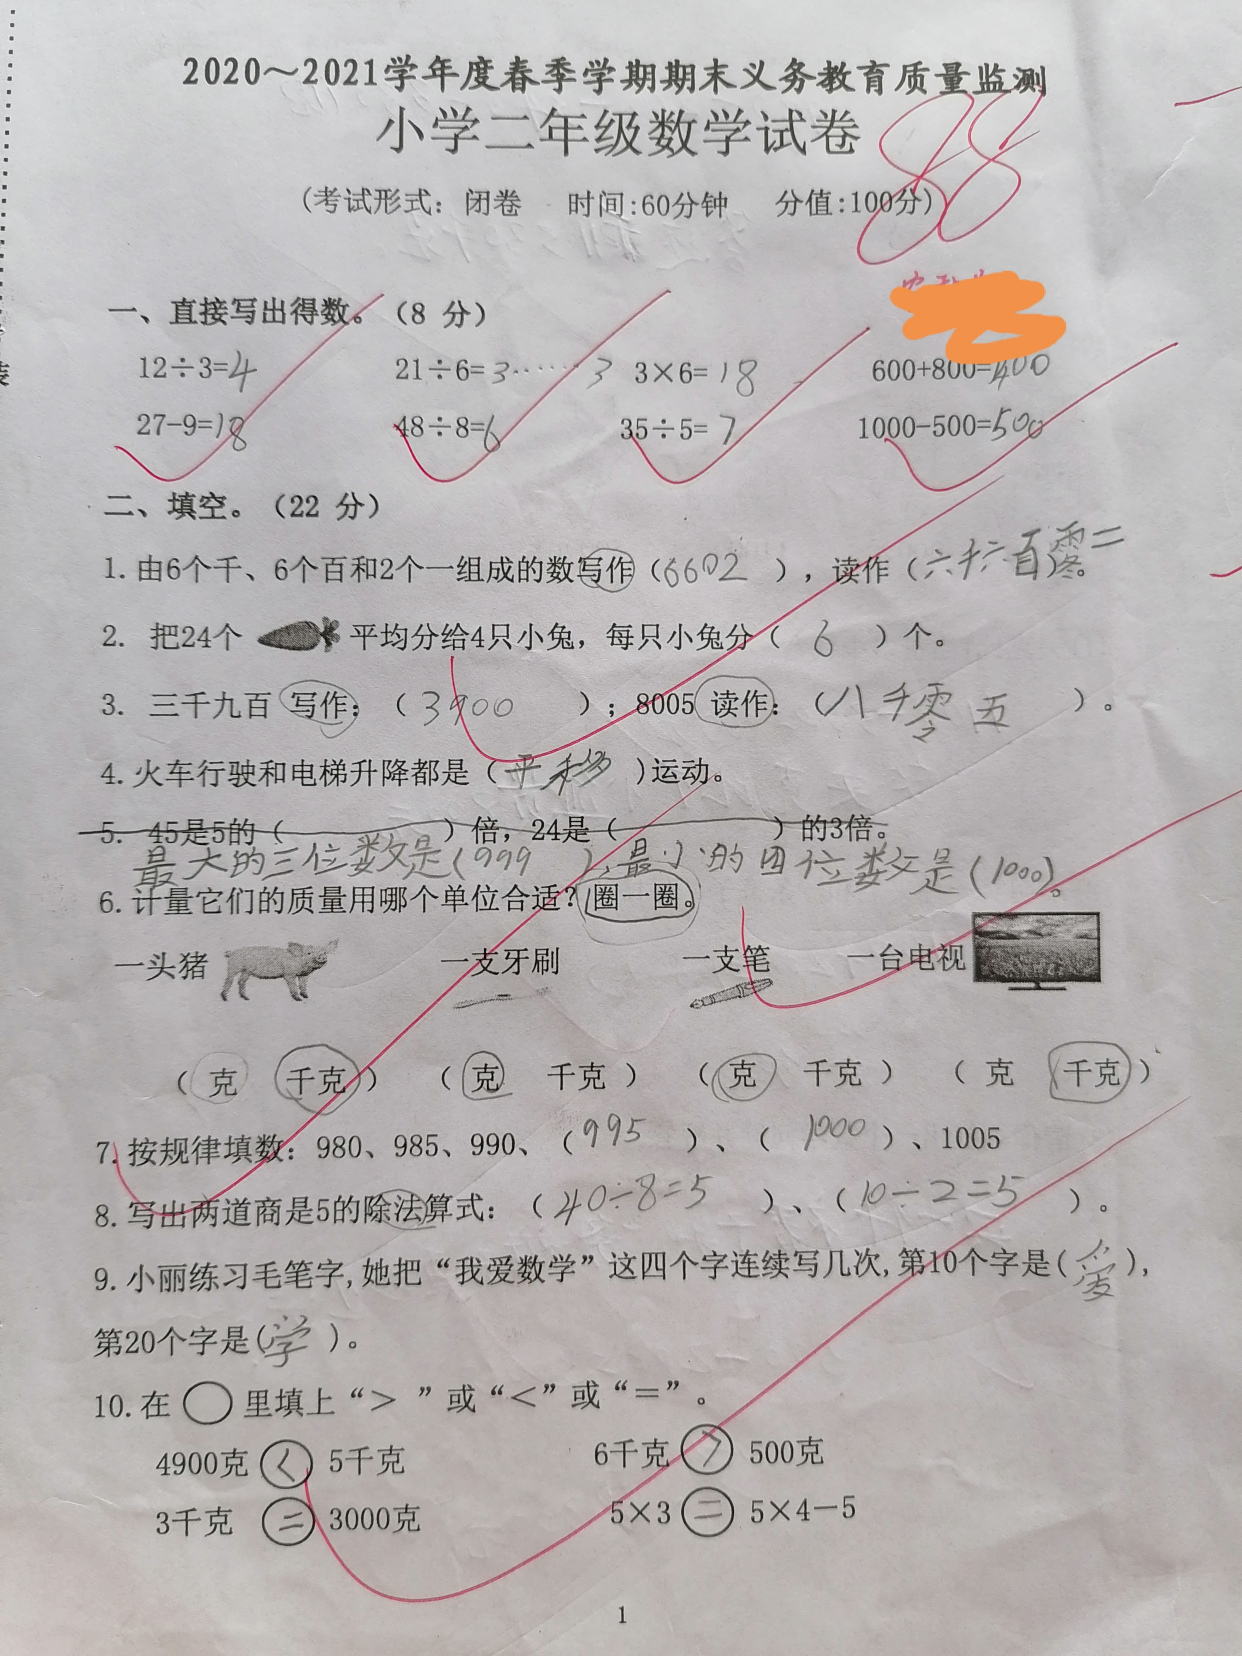 2020～2021学年度春季学期期末义务教育质量监测
小学二年级数学试卷
88
(考试形式：闭卷 时间:60分钟 分值:100分)
一、直接写出得数。（8 分）
12÷3=4 21÷6=3……3 3×6=18 600+800=1400
27-9=18 48÷8=6 35÷5=7 1000-500=500
二、填空。（22 分）
1. 由6个千、6个百和2个一组成的数写作（6602），读作（六千六百零二）。
2. 把24个 平均分给4只小兔，每只小兔分（ 6 ）个。
3. 三千九百 写作：（3900）；8005 读作：（八千零五）。
4. 火车行驶和电梯升降都是（平移）运动。
5. 45是5的（ ）倍，24是（ ）的3倍。
最大的三位数是(999)，最小的四位数是(1000)。
6. 计量它们的质量用哪个单位合适？圈一圈。
一头猪 一支牙刷 一支笔 一台电视
（ 克 千克 ） （ 克 千克 ） （ 克 千克 ） （ 克 千克 ）
7. 按规律填数：980、985、990、（995）、（1000）、1005
8. 写出两道商是5的除法算式：（40÷8=5）、（10÷2=5）。
9. 小丽练习毛笔字,她把“我爱数学”这四个字连续写几次,第10个字是(爱),
第20个字是(学)。
10. 在 ○ 里填上“＞ ”或“＜”或“＝”。
4900克 ＜ 5千克 6千克 ＞ 500克
3千克 ＝ 3000克 5×3 ＝ 5×4－5
1